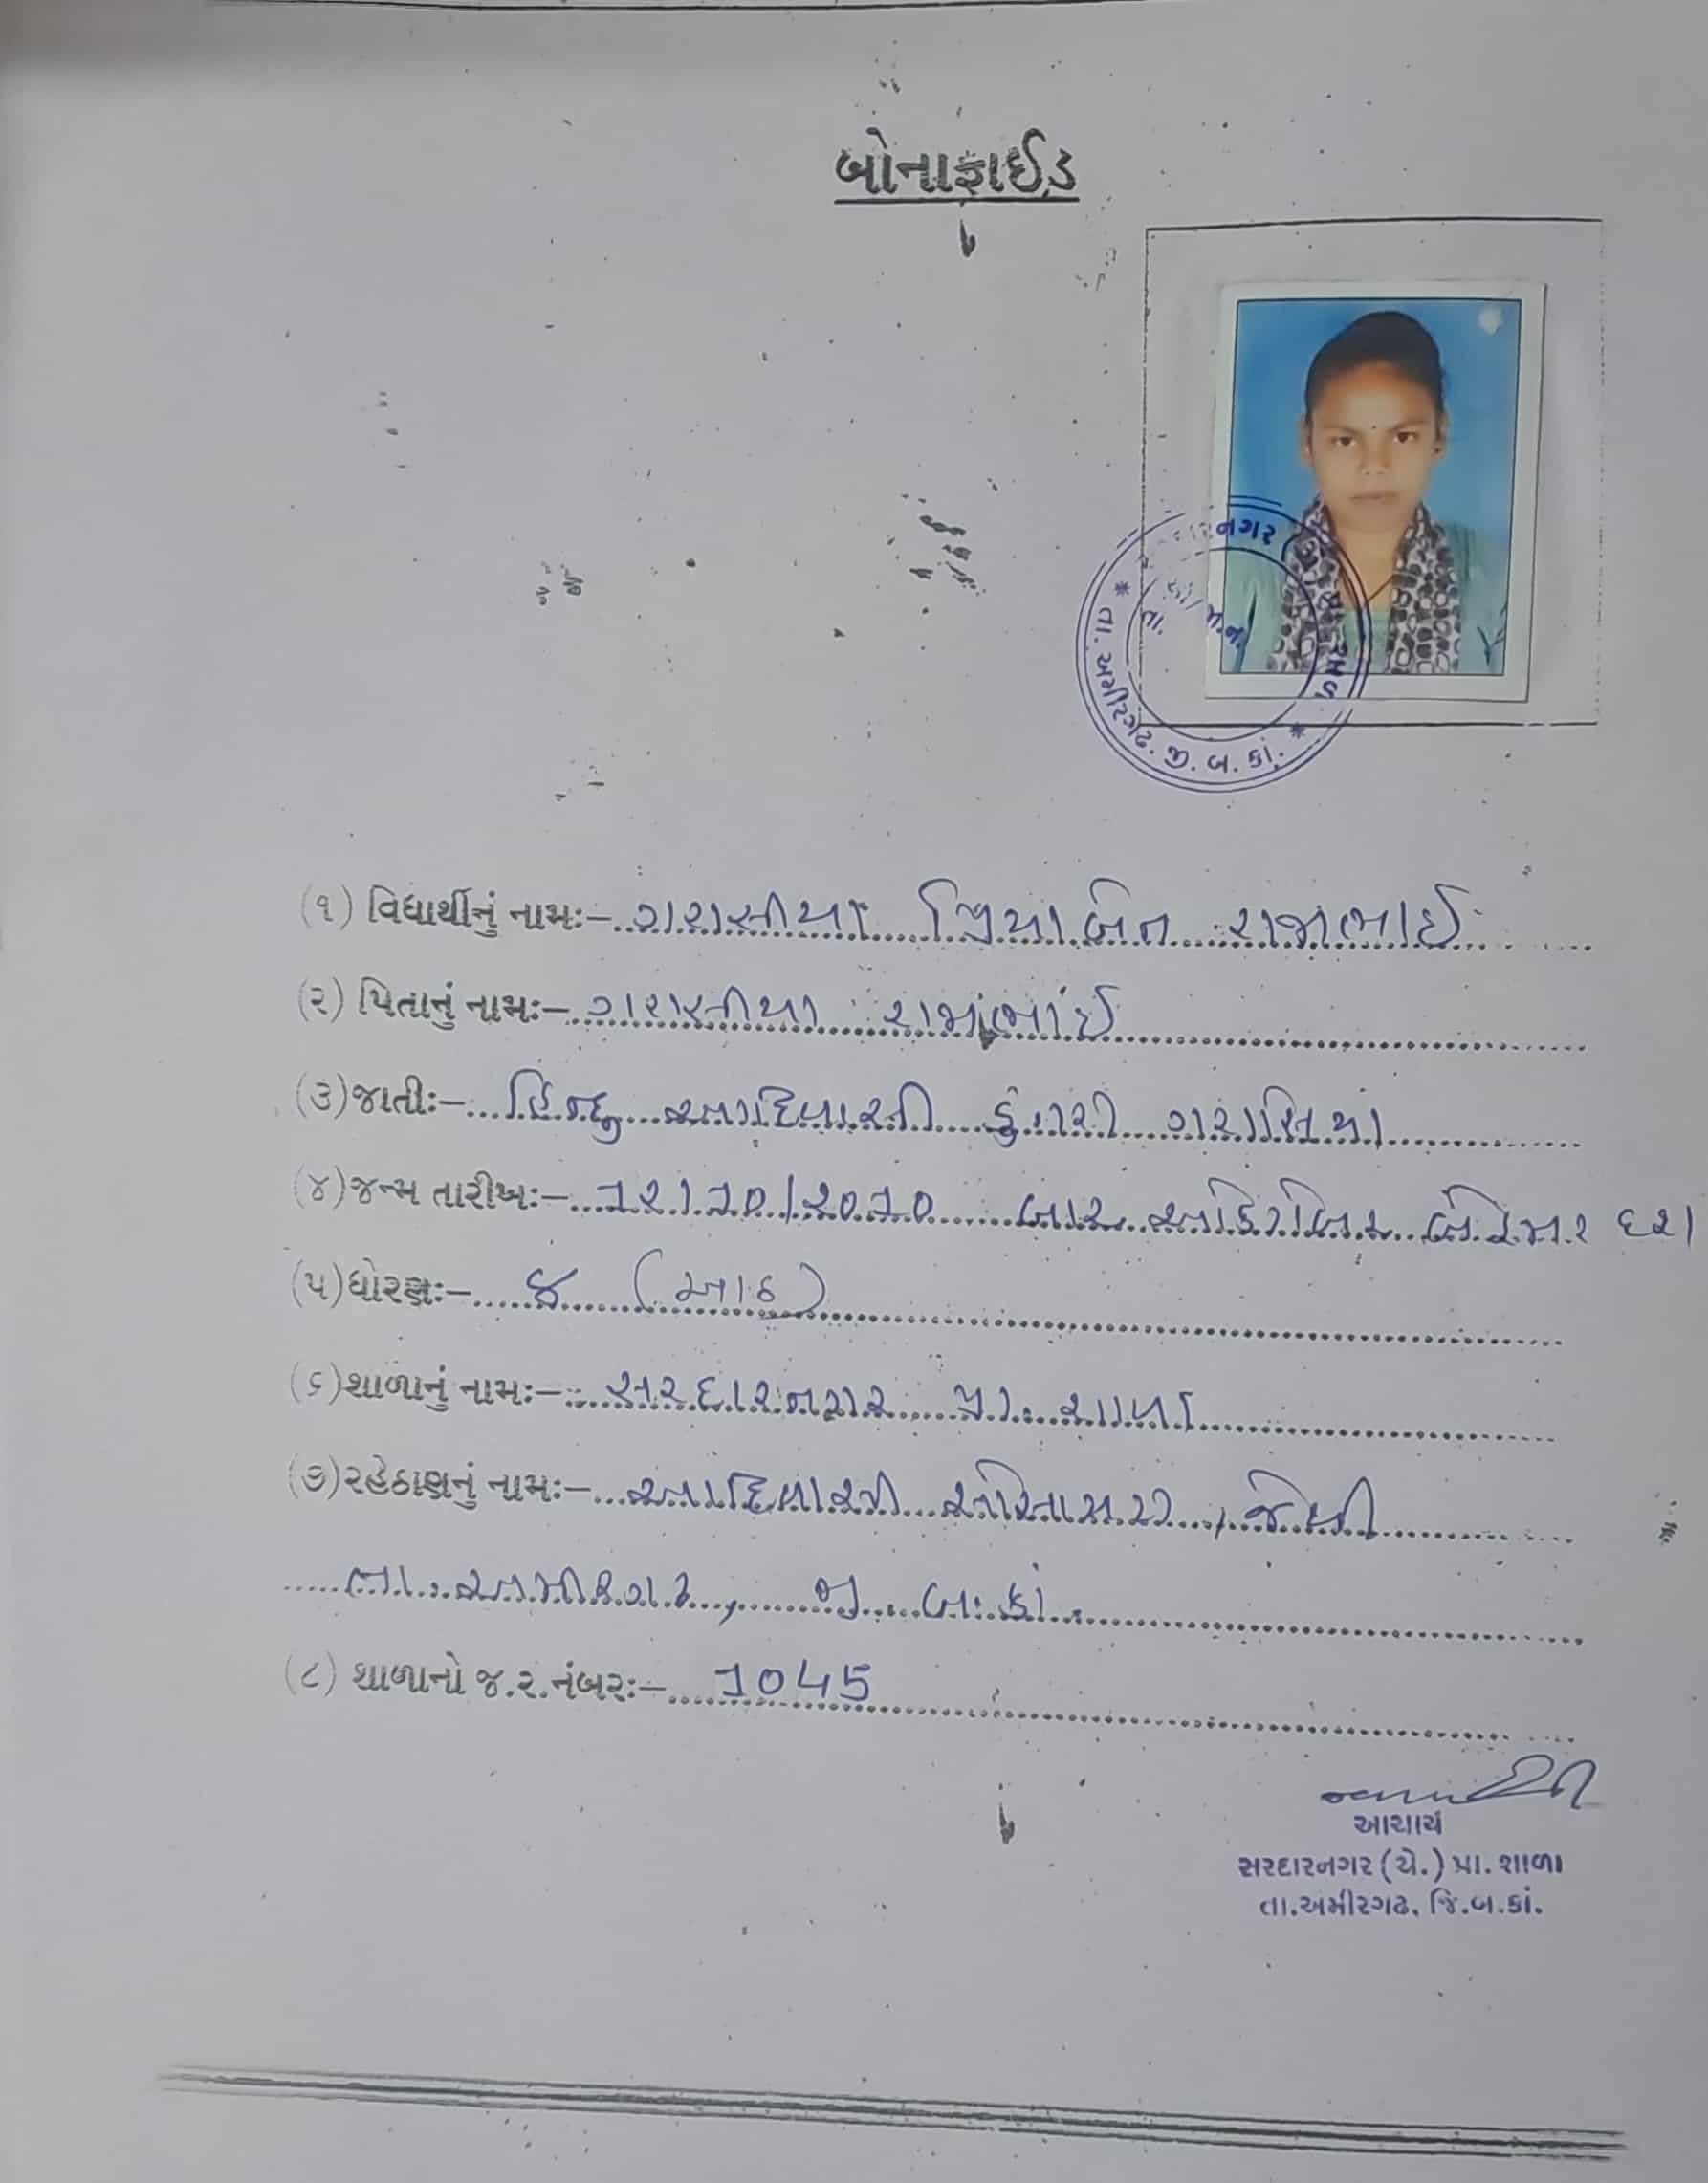 બોનાફાઈડ
નગર
તા. અમીરગઢ. જી. બ. કાં.
(૧) વિદ્યાર્થીનું નામઃ- ગરાસીયા પ્રિયાબેન રાજાભાઈ
(૨) પિતાનું નામઃ- ગરાસીયા રાજાભાઈ
(૩) જાતીઃ- હિન્દુ આદિવાસી ડુંગરી ગરાસિયા
(૪) જન્મ તારીખઃ- 12/10/2010 બાર ઓક્ટોબર બે હજાર દશ
(૫) ધોરણઃ- ૮ (આઠ)
(૬) શાળાનું નામઃ- સરદારનગર પ્રા. શાળા
(૭) રહેઠાણનું નામઃ- આદિવાસી, જેથી
તા. અમીરગઢ, જી. બ. કાં.
(૮) શાળાનો જ.ર.નંબરઃ- 1045
આચાર્ય
સરદારનગર (ચે.) પ્રા. શાળા
તા.અમીરગઢ, જિ.બ.કાં.